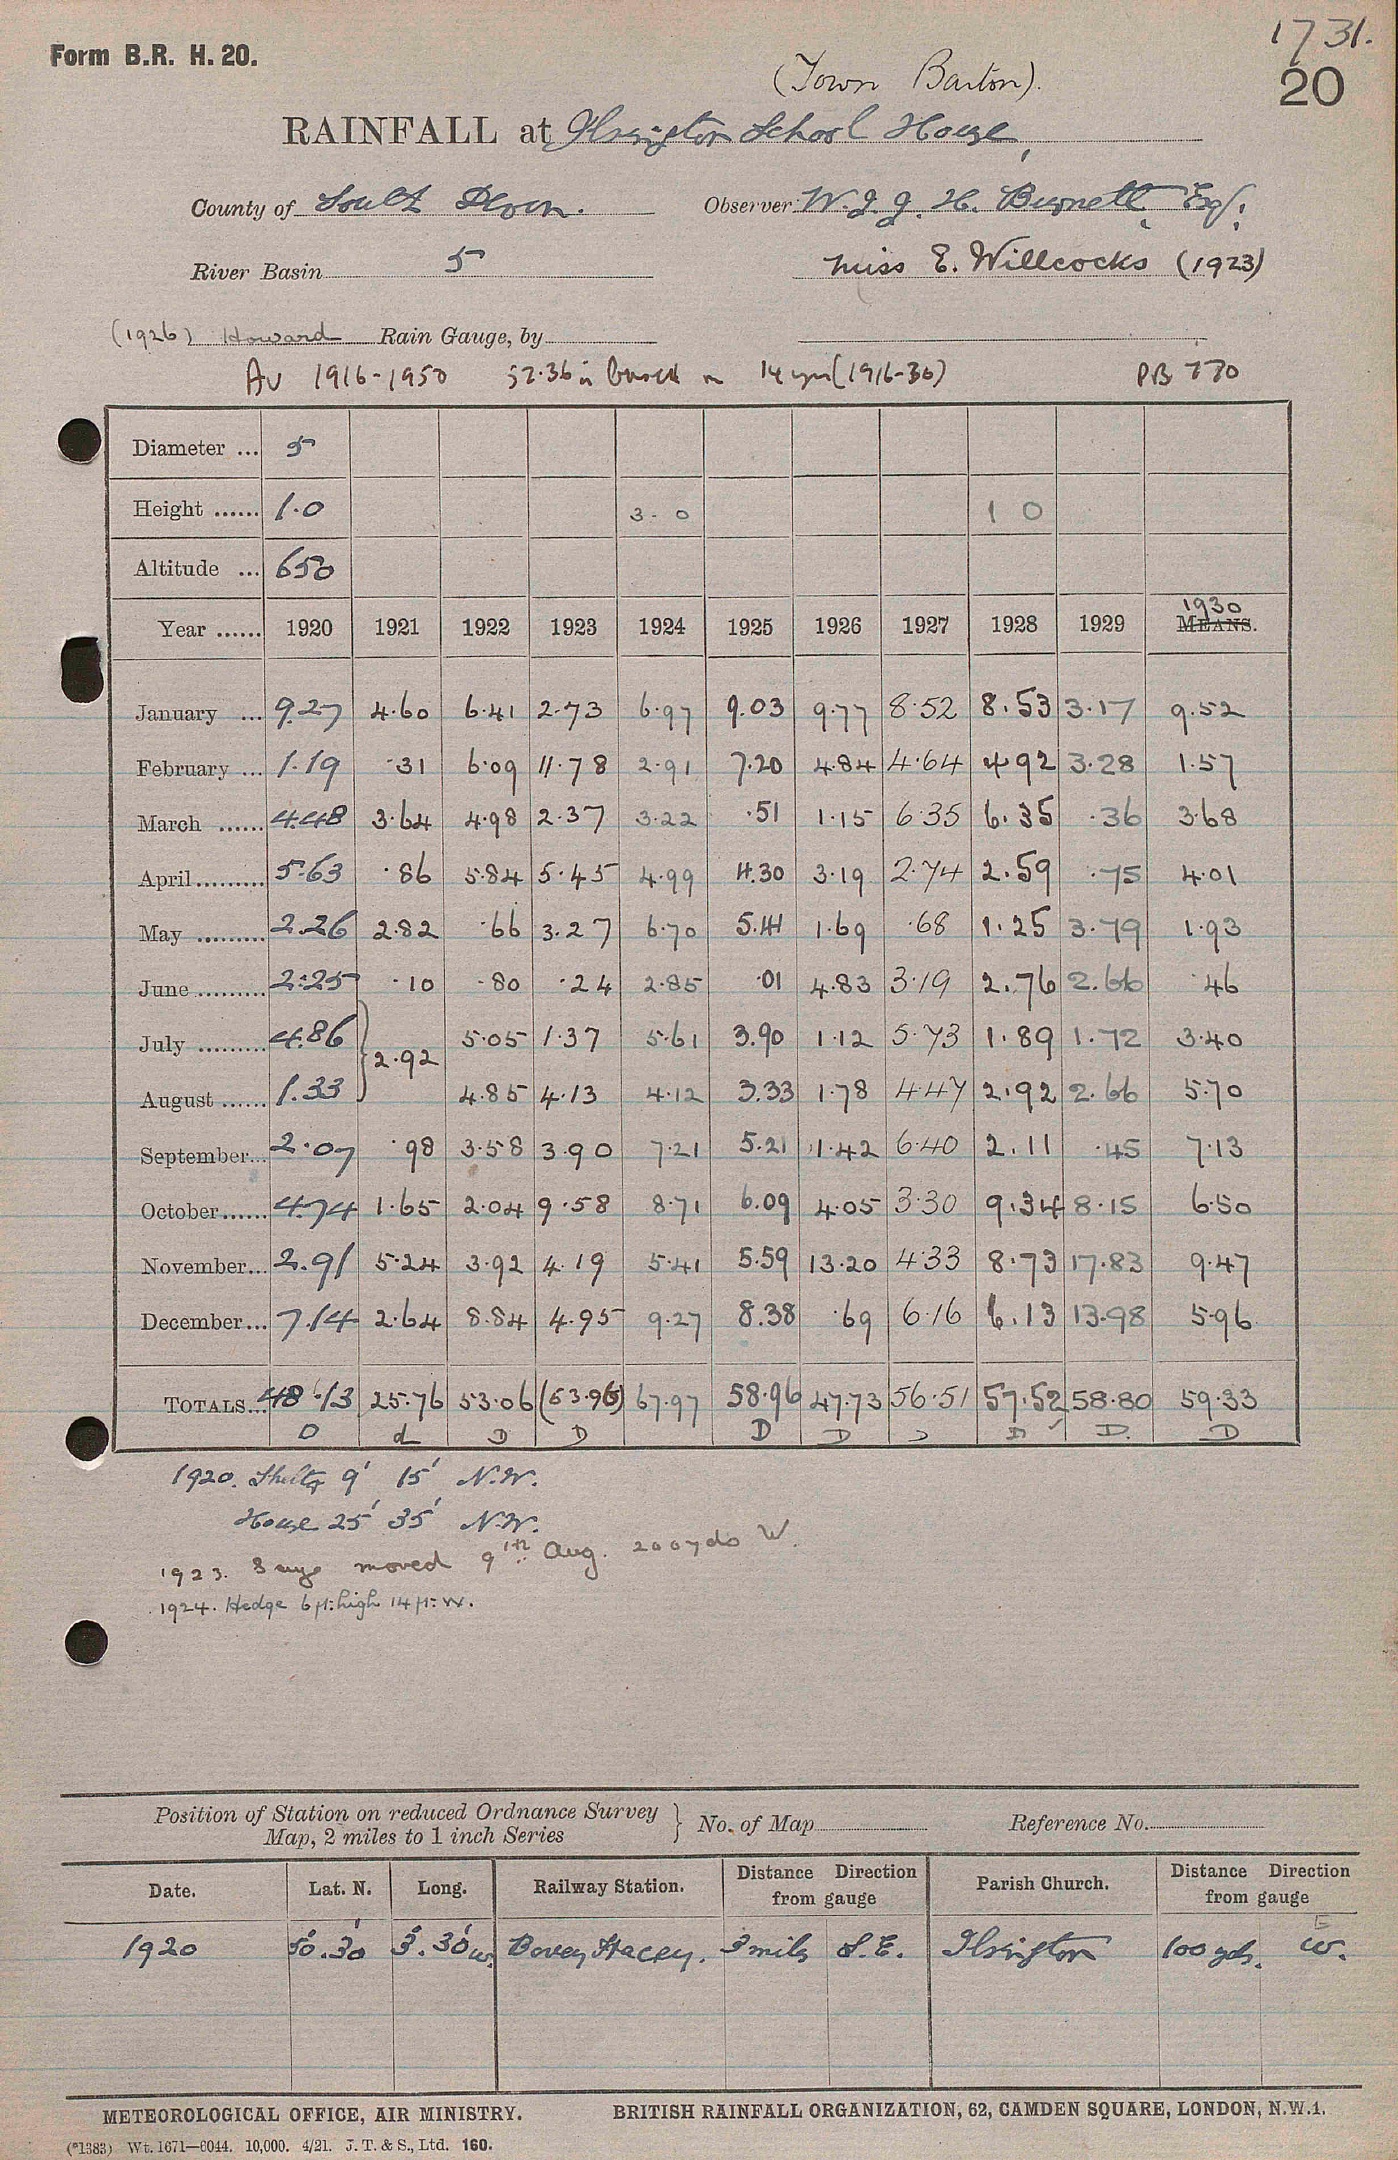 1731.
Form B.R. H. 20.
20
(Town Barton).
RAINFALL at Ilsington School House,
County of South Devon. Observer W. J. J. H. Burnett Esq.
River Basin 5 Miss E. Willcocks (1923)
(1926) Howard Rain Gauge, by
Av 1916-1950 52.36 in based on 14 yrs (1916-30) PB 770
Diameter ... 5
Height ...... 1.0 3-0 1 0
Altitude ... 650
1930
Year ...... 1920 1921 1922 1923 1924 1925 1926 1927 1928 1929 MEANS.
January ... 9.27 4.60 6.41 2.73 6.97 9.03 9.77 8.52 8.53 3.17 9.52
February ... 1.19 .31 6.09 11.78 2.91 7.20 4.84 4.64 4.92 3.28 1.57
March ...... 4.48 3.64 4.98 2.37 3.22 .51 1.15 6.35 6.35 .36 3.68
April......... 5.63 .86 5.84 5.45 4.99 4.30 3.19 2.74 2.59 .75 4.01
May ......... 2.26 2.82 .66 3.27 6.70 5.41 1.69 .68 1.25 3.79 1.93
June ......... 2.25 .10 .80 .24 2.85 .01 4.83 3.19 2.76 2.66 .46
July ......... 4.86 } 2.92 5.05 1.37 5.61 3.90 1.12 5.73 1.89 1.72 3.40
August ...... 1.33 4.85 4.13 4.12 3.33 1.78 4.47 2.92 2.66 5.70
September... 2.07 .98 3.58 3.90 7.21 5.21 1.42 6.40 2.11 .45 7.13
October...... 4.74 1.65 2.04 9.58 8.71 6.09 4.05 3.30 9.34 8.15 6.50
November... 2.91 5.24 3.92 4.19 5.41 5.59 13.20 4.33 8.73 17.83 9.47
December... 7.14 2.64 8.84 4.95 9.27 8.38 .69 6.16 6.13 13.98 5.96
TOTALS... 48.13 25.76 53.06 (53.96) 67.97 58.96 47.73 56.51 57.52 58.80 59.33
D d D D D D D D D. D
1920. Shelter 9' 15' N.W.
House 25' 35' N.W.
1923. Gauge moved 9th Aug. 200 yds W.
1924. Hedge 6 ft: high 14 ft: W.
Position of Station on reduced Ordnance Survey Map, 2 miles to 1 inch Series } No. of Map Reference No.
Date. Lat. N. Long. Railway Station. Distance Direction from gauge Parish Church. Distance Direction from gauge
E
1920 50°.30' 3°.30' W. Bovey Tracey. 3 miles S.E. Ilsington 100 yds. W.
METEOROLOGICAL OFFICE, AIR MINISTRY. BRITISH RAINFALL ORGANIZATION, 62, CAMDEN SQUARE, LONDON, N.W.1.
(*1383) Wt. 1671—6044. 10,000. 4/21. J. T. & S., Ltd. 160.